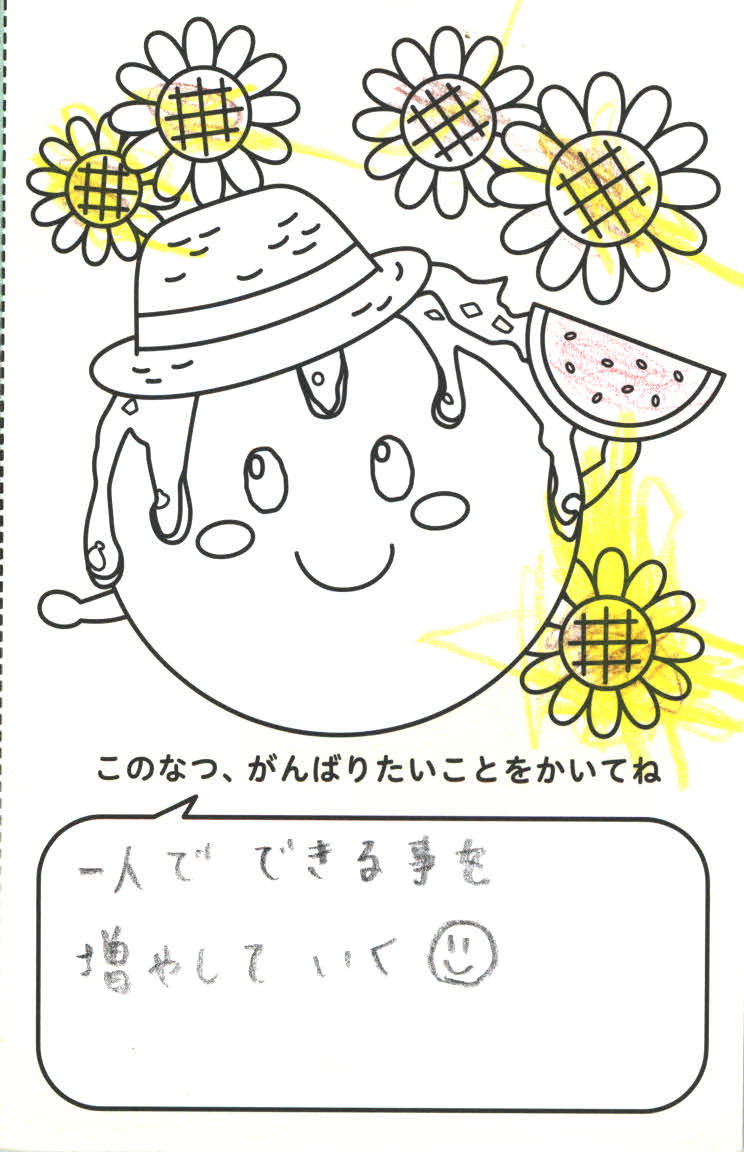 このなつ、がんばりたいことをかいてね
一人で できる事を
増やして いく